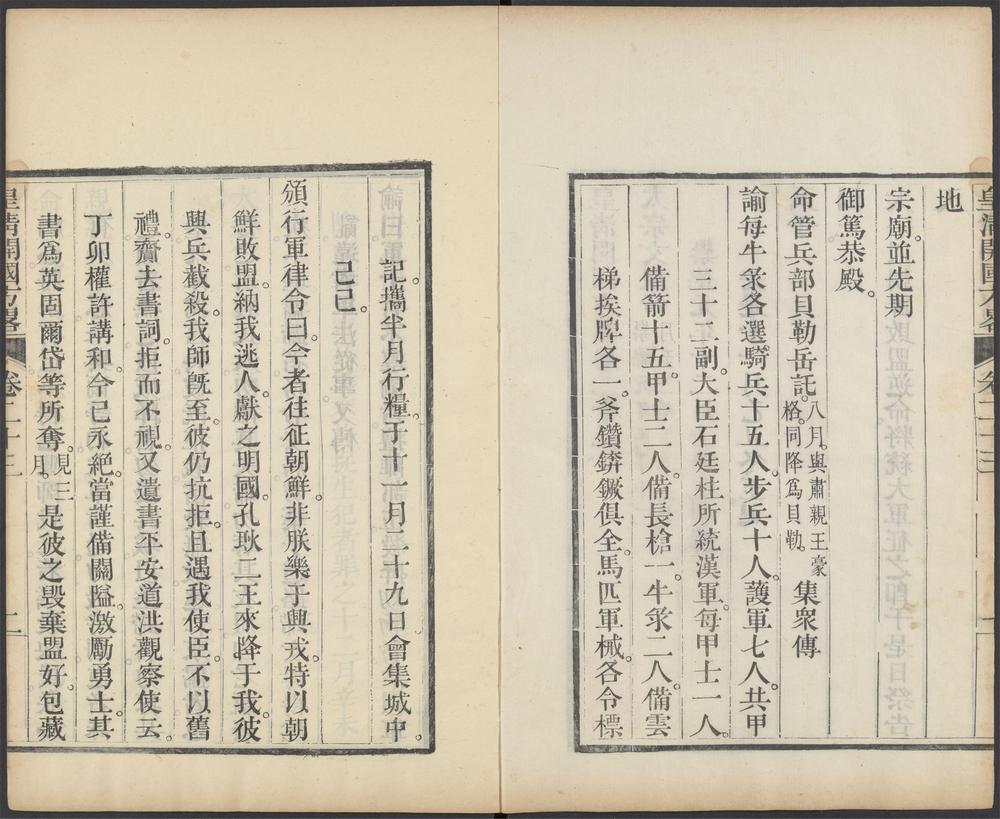 皇清開國方畧 卷二十三
地
宗廟並先期
御篤恭殿。
命管兵部貝勒岳託。八月。與肅親王豪格。同降爲貝勒。集衆傳
諭每牛彔各選騎兵十五人。步兵十人。護軍七人。共甲
三十二副。大臣石廷柱所統漢軍。每甲士一人。
備箭十五。甲士二人。備長槍一。牛彔二人。備雲
梯挨牌各一。斧鑽錛鐝俱全。馬匹軍械。各令標
記。攜半月行糧。于十一月二十九日會集城中。
己巳。
頒行軍律令曰。今者往征朝鮮。非朕樂于興戎。特以朝
鮮敗盟。納我逃人。獻之明國。孔耿二王來降于我。彼
興兵截殺。我師旣至。彼仍抗拒。且遇我使臣。不以舊
禮。齎去書詞。拒而不視。又遺書平安道洪觀察使云。
丁卯權許講和。今已永絕。當謹備關隘。激勵勇士。其
書爲英固爾岱等所奪。見三月。是彼之毀棄盟好。包藏
皇清開國方畧 卷二十三 二